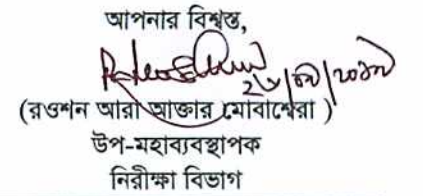 আপনার বিশ্বস্ত,
(রওশন আরা আক্তার মোবাশ্বেরা )
উপ-মহাব্যবস্থাপক
নিরীক্ষা বিভাগ